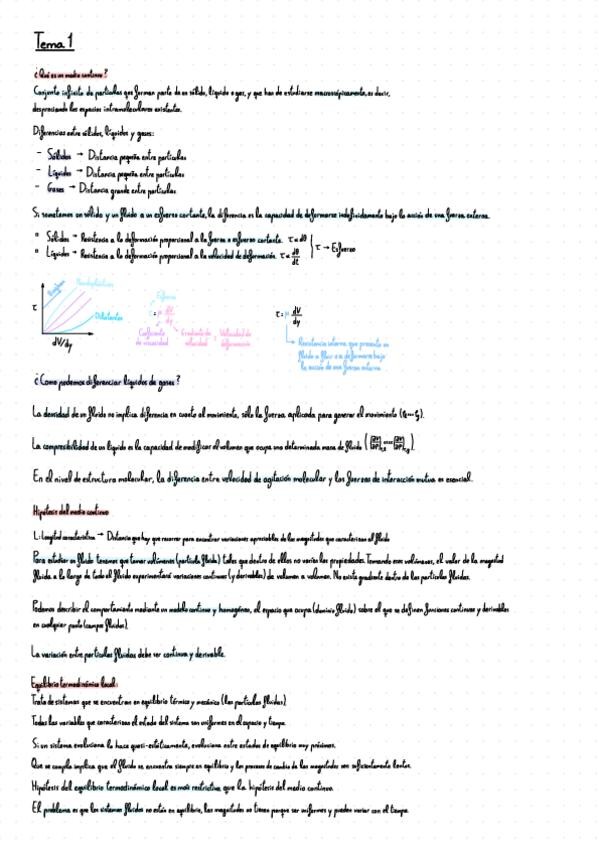 Tema 1
¿Qué es un medio continuo?
Conjunto infinito de partículas que forman parte de un sólido, líquido o gas, y que han de estudiarse macroscópicamente, es decir,
despreciando los espacios intramoleculares existentes.
Diferencias entre sólidos, líquidos y gases:
- Sólidos → Distancia pequeña entre partículas
- Líquidos → Distancia pequeña entre partículas
- Gases → Distancia grande entre partículas
Si sometemos un sólido y un fluido a un esfuerzo cortante, la diferencia es la capacidad de deformarse indefinidamente bajo la acción de una fuerza externa.
• Sólidos → Resistencia a la deformación proporcional a la fuerza o esfuerzo cortante. τ ∝ dθ
• Líquidos → Resistencia a la deformación proporcional a la velocidad de deformación. τ ∝ dθ/dt } τ → Esfuerzo
τ
Dilatantes
dV/dy
Esfuerzo
τ = μ dV/dy
Coeficiente de viscosidad
Gradiente de velocidad
Velocidad de deformación
τ = μ dV/dy
Resistencia interna que presenta un
fluido a fluir o a deformarse bajo
la acción de una fuerza externa
¿Como podemos diferenciar líquidos de gases?
La densidad de un fluido no implica diferencia en cuanto al movimiento, sólo la fuerza aplicada para generar el movimiento
La compresibilidad de un líquido es la capacidad de modificar el volumen que ocupa una determinada masa de fluido
En el nivel de estructura molecular, la diferencia entre velocidad de agitación molecular y las fuerzas de interacción mutua es esencial.
Hipótesis del medio continuo
L: Longitud característica → Distancia que hay que recorrer para encontrar variaciones apreciables de las magnitudes que caracterizan al fluido
Para estudiar un fluido tenemos que tomar volúmenes (partícula fluida) tales que dentro de ellos no varíen las propiedades. Tomando esos volúmenes, el valor de la magnitud
fluida a lo largo de todo el fluido experimentará variaciones continuas (y derivables) de volumen a volumen. No existe gradiente dentro de las partículas fluidas.
Podemos describir el comportamiento mediante un modelo continuo y homogéneo, el espacio que ocupa (dominio fluido) sobre el que se definen funciones continuas y derivables
en cualquier punto (campos fluidos).
La variación entre partículas fluidas debe ser continua y derivable.
Equilibrio termodinámico local:
Trata de sistemas que se encuentran en equilibrio térmico y mecánico (las partículas fluidas)
Todas las variables que caracterizan el estado del sistema son uniformes en el espacio y tiempo.
Si un sistema evoluciona lo hace quasi-estáticamente, evoluciona entre estados de equilibrio muy próximos.
Que se cumpla implica que el fluido se encuentra siempre en equilibrio y los procesos de cambio de las magnitudes son suficientemente lentos.
Hipótesis del equilibrio termodinámico local es más restrictiva que la hipótesis del medio continuo.
El problema es que los sistemas fluidos no están en equilibrio, las magnitudes no tienen porque ser uniformes y pueden variar con el tiempo.